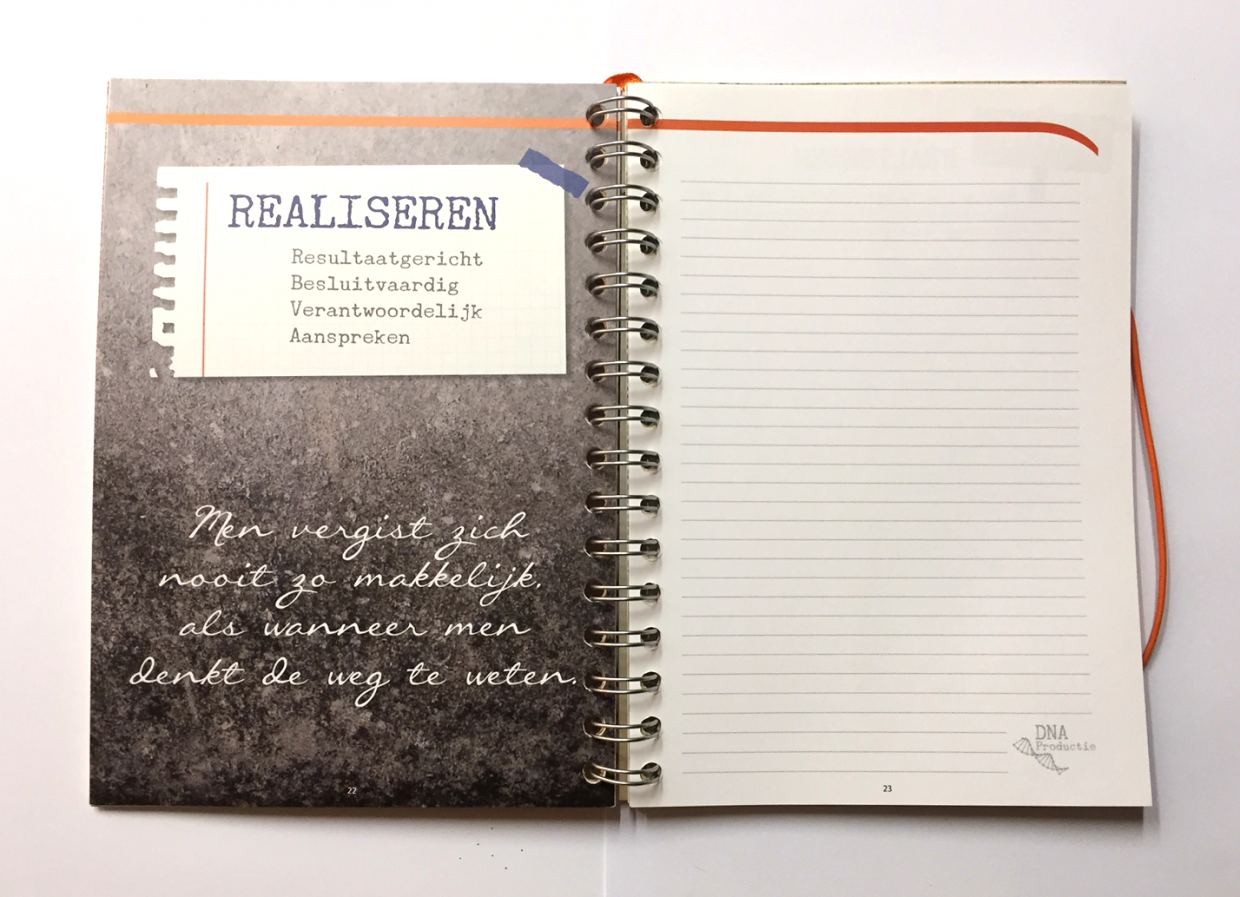 REALISEREN
Resultaatgericht
Besluitvaardig
Verantwoordelijk
Aanspreken
Men vergist zich
nooit zo makkelijk,
als wanneer men
denkt de weg te weten.
22
DNA
Productie
23